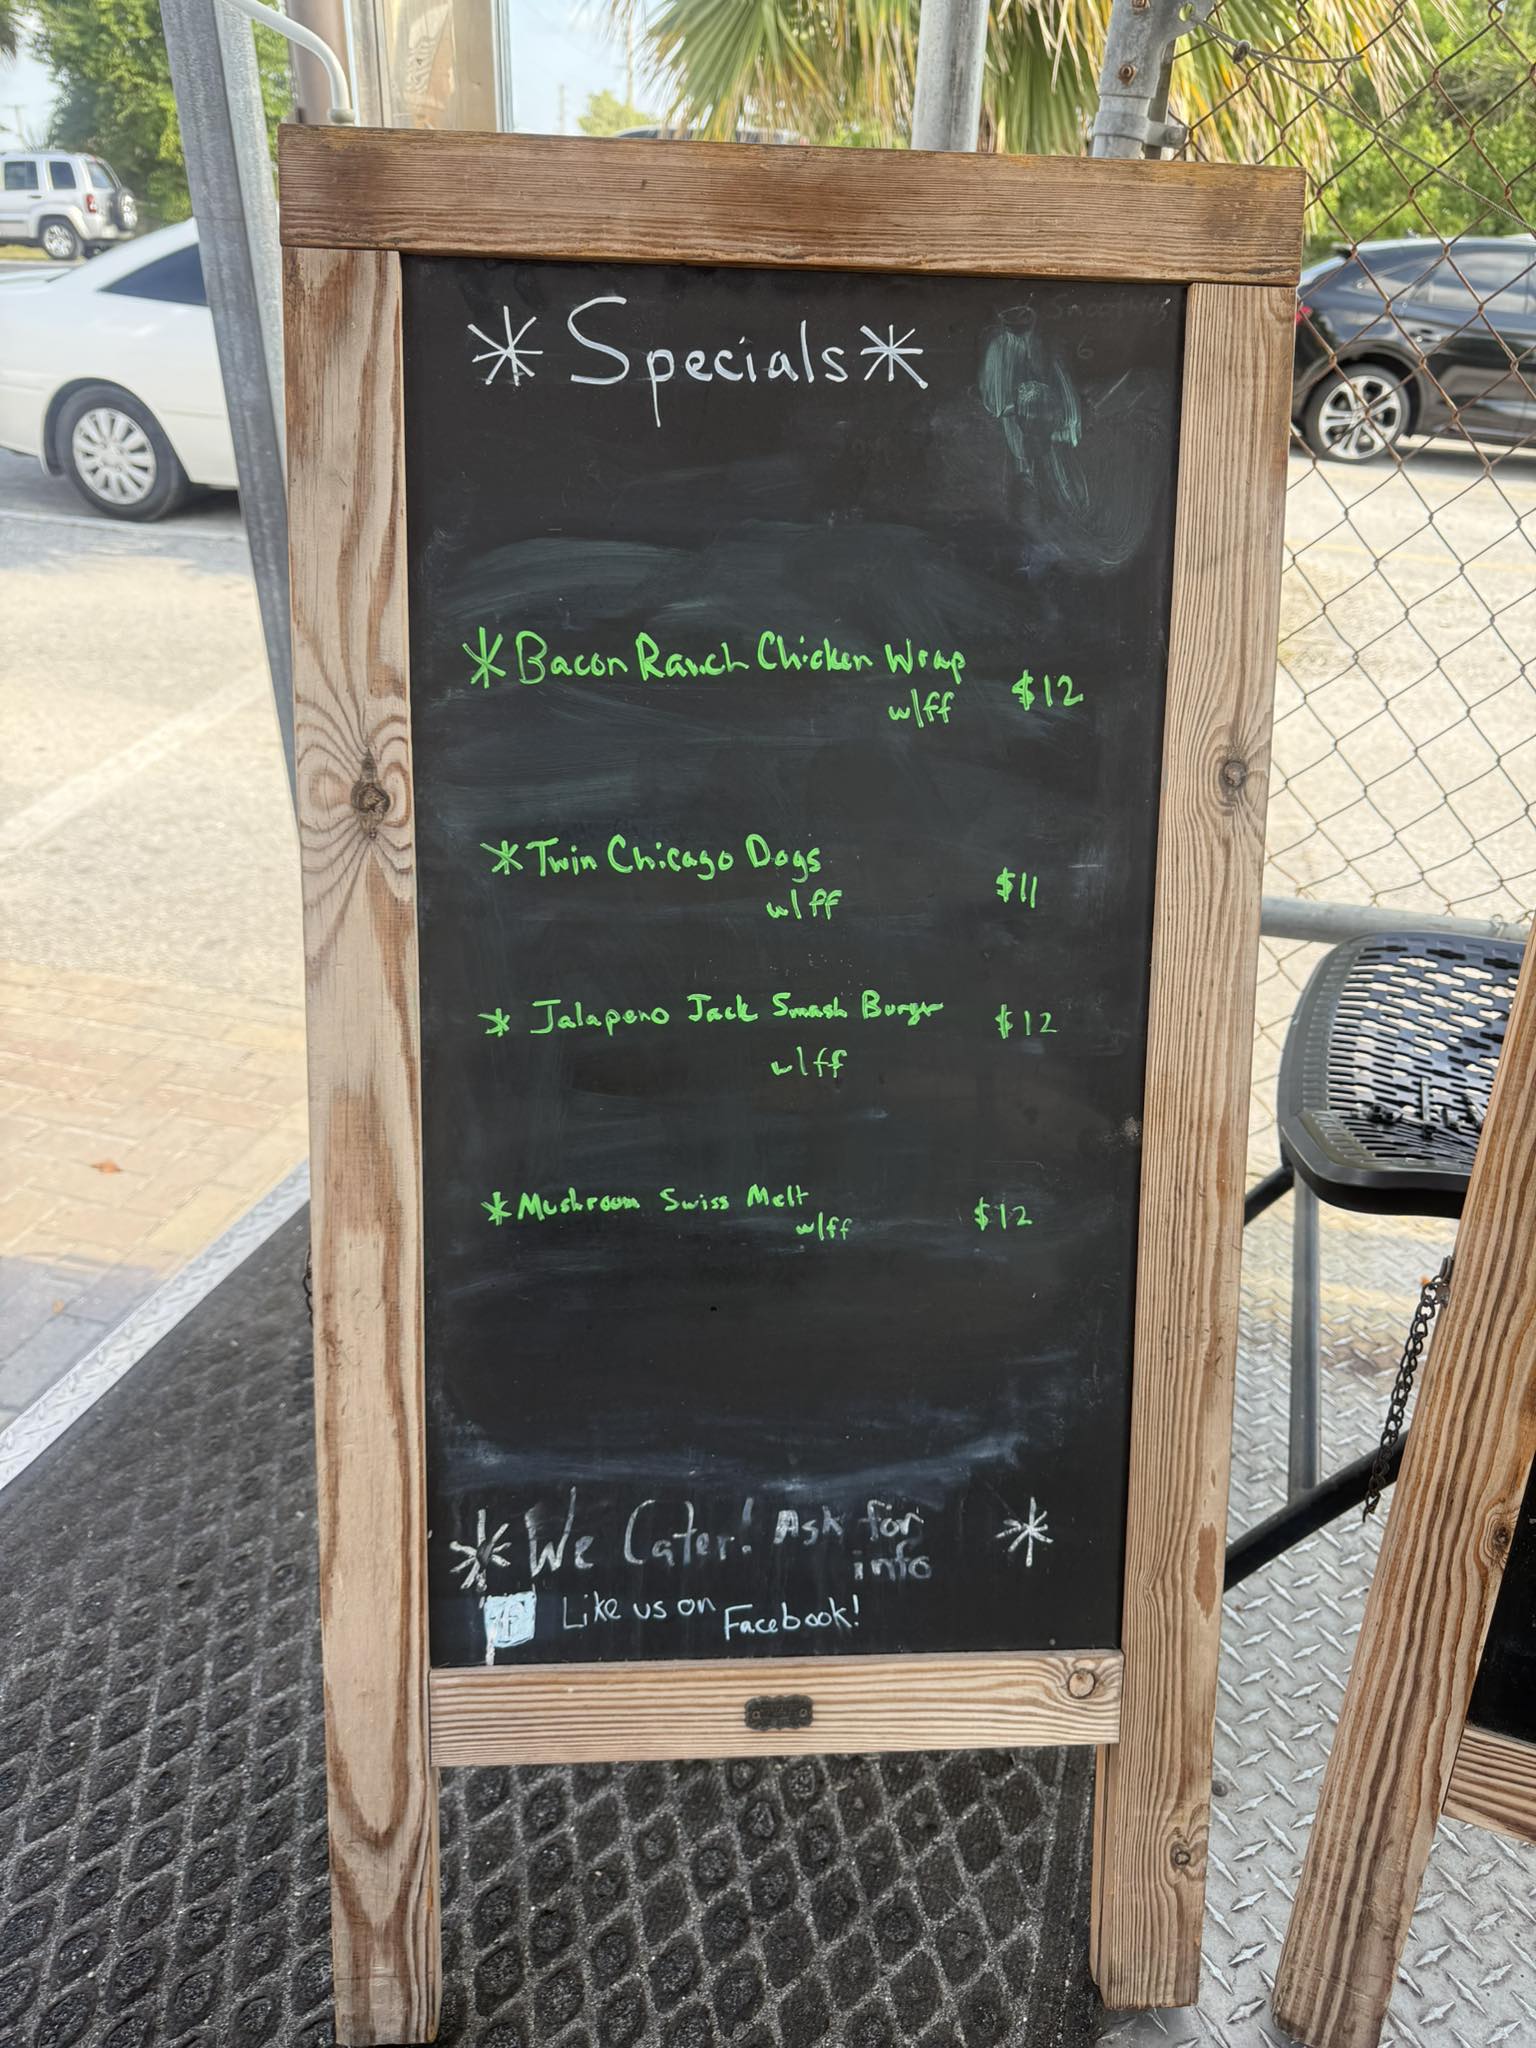 *Specials*
*Bacon Ranch Chicken Wrap
w/ff $12
*Twin Chicago Dogs
w/ff $11
* Jalapeno Jack Smash Burger $12
w/ff
*Mushroom Swiss Melt
w/ff $12
*We Cater! Ask for *
info
f Like us on Facebook!